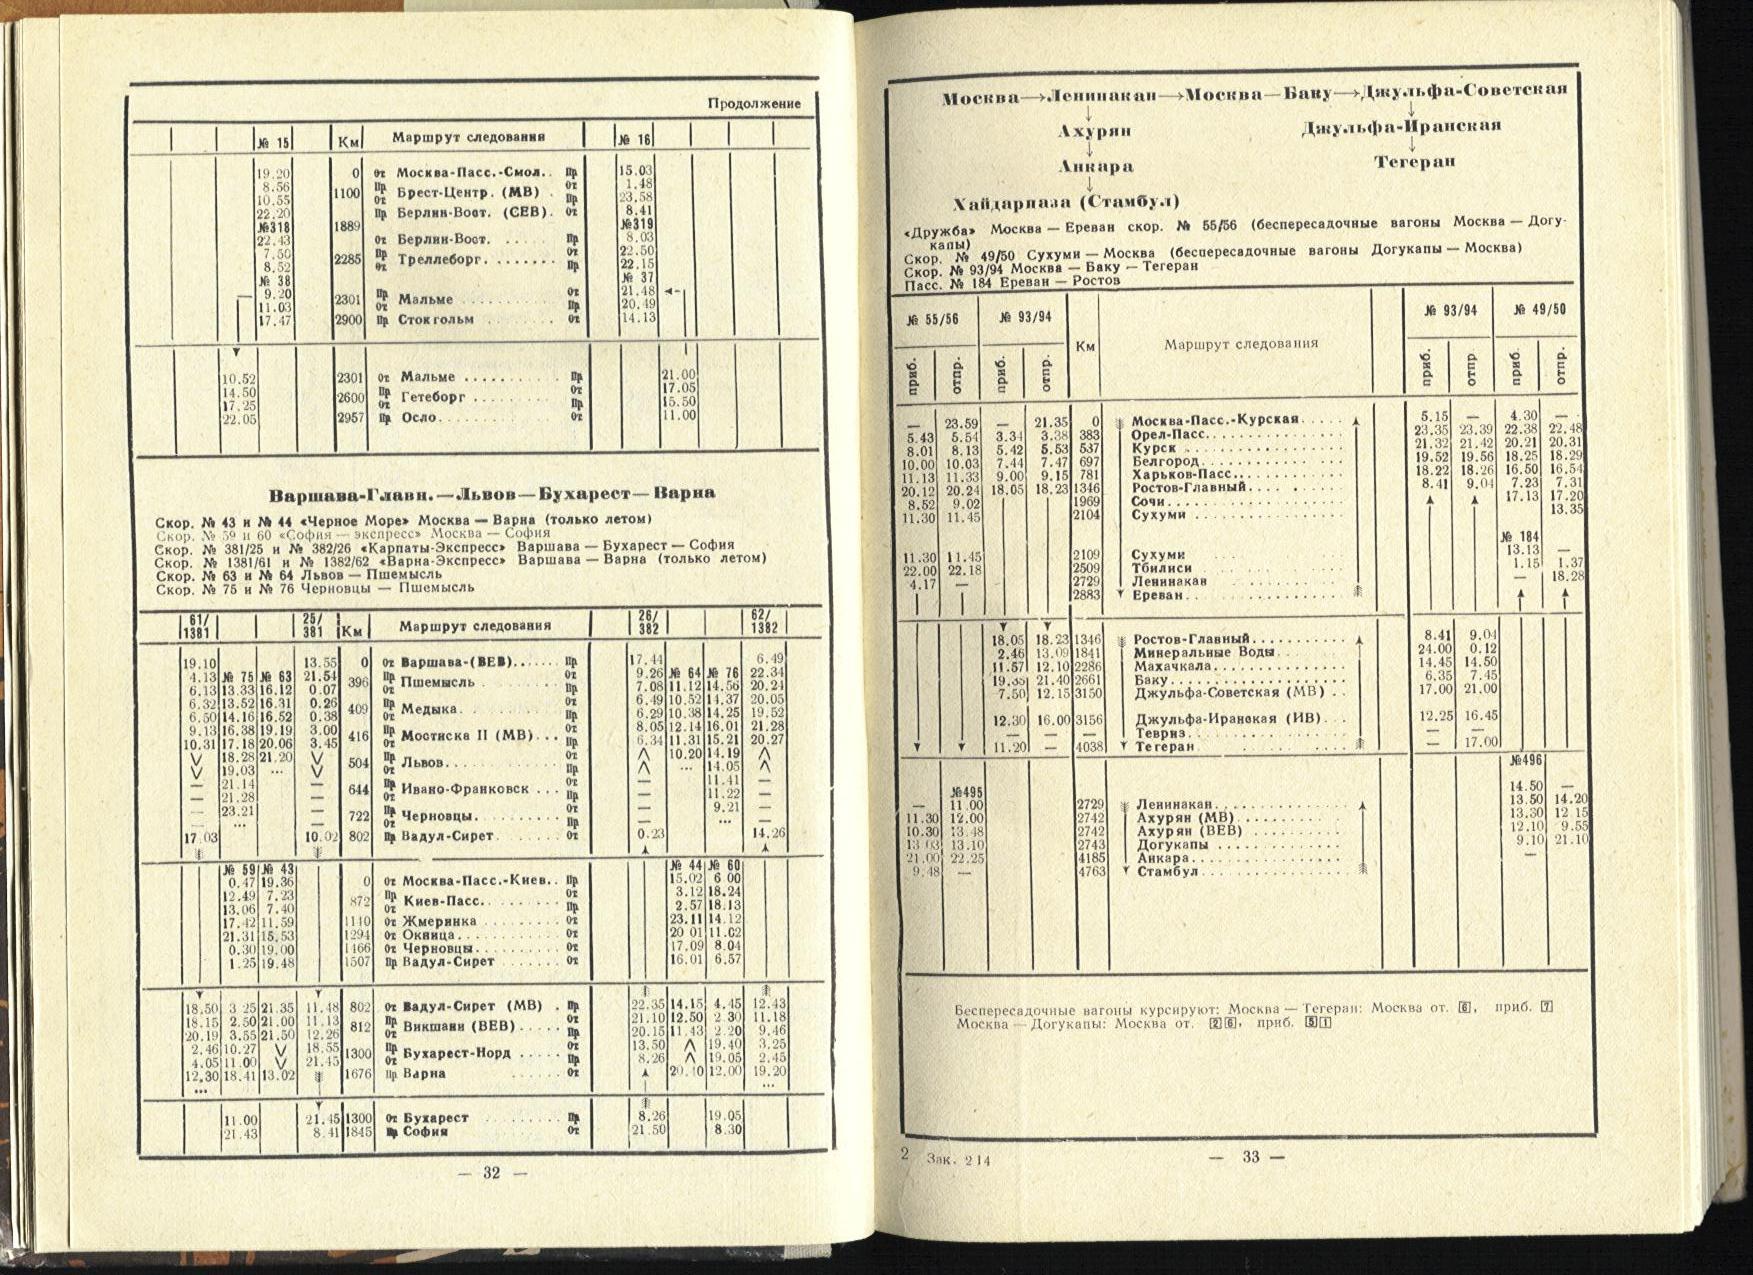 Продолжение
№ 15 Км Маршрут следования № 16
19.20 0 От Москва-Пасс.-Смол. Пр 15.03
8.56 Пр От 1.48
10.55 1100 От Брест-Центр. (МВ) Пр 23.58
22.20 Пр Берлин-Вост. (СЕВ) От 8.41
№318 1889 №319
22.43 От Берлин-Вост. Пр 8.03
7.50 Пр От 22.50
8.52 2285 От Треллеборг Пр 22.15
№ 38 № 37
9.20 Пр От 21.48
11.03 2301 От Мальме Пр 20.49
17.47 2900 Пр Стокгольм От 14.13
10.52 2301 От Мальме Пр 21.00
14.50 Пр От 17.05
17.25 2600 От Гетеборг Пр 15.50
22.05 2957 Пр Осло От 11.00
Варшава-Главн.—Львов—Бухарест—Варна
Скор. № 43 и № 44 «Черное Море» Москва — Варна (только летом)
Скор. № 59 и 60 «София — экспресс» Москва — София
Скор. № 381/25 и № 382/26 «Карпаты-Экспресс» Варшава — Бухарест — София
Скор. № 1381/61 и № 1382/62 «Варна-Экспресс» Варшава — Варна (только летом)
Скор. № 63 и № 64 Львов — Пшемысль
Скор. № 75 и № 76 Черновцы — Пшемысль
61/1381 25/381 Км Маршрут следования 26/382 62/1382
19.10 13.55 0 От Варшава-(ВЕВ) Пр 17.44 6.49
4.13 № 75 № 63 21.54 Пр От 9.26 № 64 № 76 22.34
6.13 13.33 16.12 0.07 396 От Пшемысль Пр 7.08 11.12 14.56 20.24
6.32 13.52 16.31 0.26 Пр От 6.49 10.52 14.37 20.05
6.50 14.16 16.52 0.38 409 От Медыка Пр 6.29 10.38 14.25 19.52
9.13 16.38 19.19 3.00 Пр От 8.05 12.14 16.01 21.28
10.31 17.18 20.06 3.45 416 От Мостиска II (МВ) Пр 6.34 11.31 15.21 20.27
18.28 21.20 Пр От 10.20 14.19
19.03 ... 504 От Львов Пр ... 14.05
— 21.14 — Пр От — 11.41 —
— 21.28 — 644 От Ивано-Франковск Пр — 11.22 —
— 23.21 — Пр От — 9.21 —
— ... — 722 От Черновцы Пр — ... —
17.03 10.02 802 Пр Вадул-Сирет От 0.23 14.26
№ 59 № 43 № 44 № 60
0.47 19.36 0 От Москва-Пасс.-Киев. Пр 15.02 6.00
12.49 7.23 Пр От 3.12 18.24
13.06 7.40 872 От Киев-Пасс. Пр 2.57 18.13
17.42 11.59 1140 От Жмеринка От 23.11 14.12
21.31 15.53 1294 От Окница От 20.01 11.02
0.30 19.00 1466 От Черновцы От 17.09 8.04
1.25 19.48 1507 Пр Вадул-Сирет От 16.01 6.57
18.50 3.25 21.35 11.48 802 От Вадул-Сирет (МВ) Пр 22.35 14.15 4.45 12.43
18.15 2.50 21.00 11.13 Пр От 21.10 12.50 2.30 11.18
20.19 3.55 21.50 12.26 812 От Викшани (ВЕВ) Пр 20.15 11.43 2.20 9.46
2.46 10.27 18.55 Пр От 13.50 19.40 3.25
4.05 11.00 21.45 1300 От Бухарест-Норд Пр 8.26 19.05 2.45
12.30 18.41 13.02 1676 Пр Варна От 20.10 12.00 19.20
... ...
11.00 21.45 1300 От Бухарест Пр 8.26 19.05
21.43 8.41 1845 Пр София От 21.50 8.30
— 32 —
Москва→Ленинакан→Москва—Баку→Джульфа-Советская
↓ ↓
Ахурян Джульфа-Иранская
↓ ↓
Анкара Тегеран
↓
Хайдарпаза (Стамбул)
«Дружба» Москва — Ереван скор. № 55/56 (беспересадочные вагоны Москва — Догу-
капы)
Скор. № 49/50 Сухуми — Москва (беспересадочные вагоны Догукапы — Москва)
Скор. № 93/94 Москва — Баку — Тегеран
Пасс. № 184 Ереван — Ростов
№ 55/56 № 93/94 Км Маршрут следования № 93/94 № 49/50
приб. отпр. приб. отпр. приб. отпр. приб. отпр.
— 23.59 — 21.35 0 Москва-Пасс.-Курская 5.15 — 4.30 —
5.43 5.54 3.34 3.38 383 Орел-Пасс. 23.35 23.39 22.38 22.48
8.01 8.13 5.42 5.53 537 Курск 21.32 21.42 20.21 20.31
10.00 10.03 7.44 7.47 697 Белгород 19.52 19.56 18.25 18.29
11.13 11.33 9.00 9.15 781 Харьков-Пасс. 18.22 18.26 16.50 16.54
20.12 20.24 18.05 18.23 1346 Ростов-Главный 8.41 9.04 7.23 7.31
8.52 9.02 1969 Сочи 17.13 17.20
11.30 11.45 2104 Сухуми 13.35
№ 184
11.30 11.45 2109 Сухуми 13.13 —
22.00 22.18 2509 Тбилиси 1.15 1.37
4.17 — 2729 Ленинакан — 18.28
2883 Ереван
18.05 18.23 1346 Ростов-Главный 8.41 9.04
2.46 13.09 1841 Минеральные Воды 24.00 0.12
11.57 12.10 2286 Махачкала 14.45 14.50
21.40 2661 Баку 6.35 7.45
7.50 12.15 3150 Джульфа-Советская (МВ) 17.00 21.00
12.30 16.00 3156 Джульфа-Иранская (ИВ) 12.25 16.45
— — Тевриз — —
11.20 — 4038 Тегеран — 17.00
№496
№495 14.50 —
— 11.00 2729 Ленинакан 13.50 14.20
11.30 12.00 2742 Ахурян (МВ) 13.30 12.15
10.30 13.48 2742 Ахурян (ВЕВ) 12.10 9.55
13.03 13.10 2743 Догукапы 9.10 21.10
21.00 22.25 4185 Анкара —
9.48 — 4763 Стамбул
Беспересадочные вагоны курсируют: Москва — Тегеран: Москва от. 6, приб. 7
Москва — Догукапы: Москва от. 2 6, приб. 5 1
2 Зак. 214
— 33 —